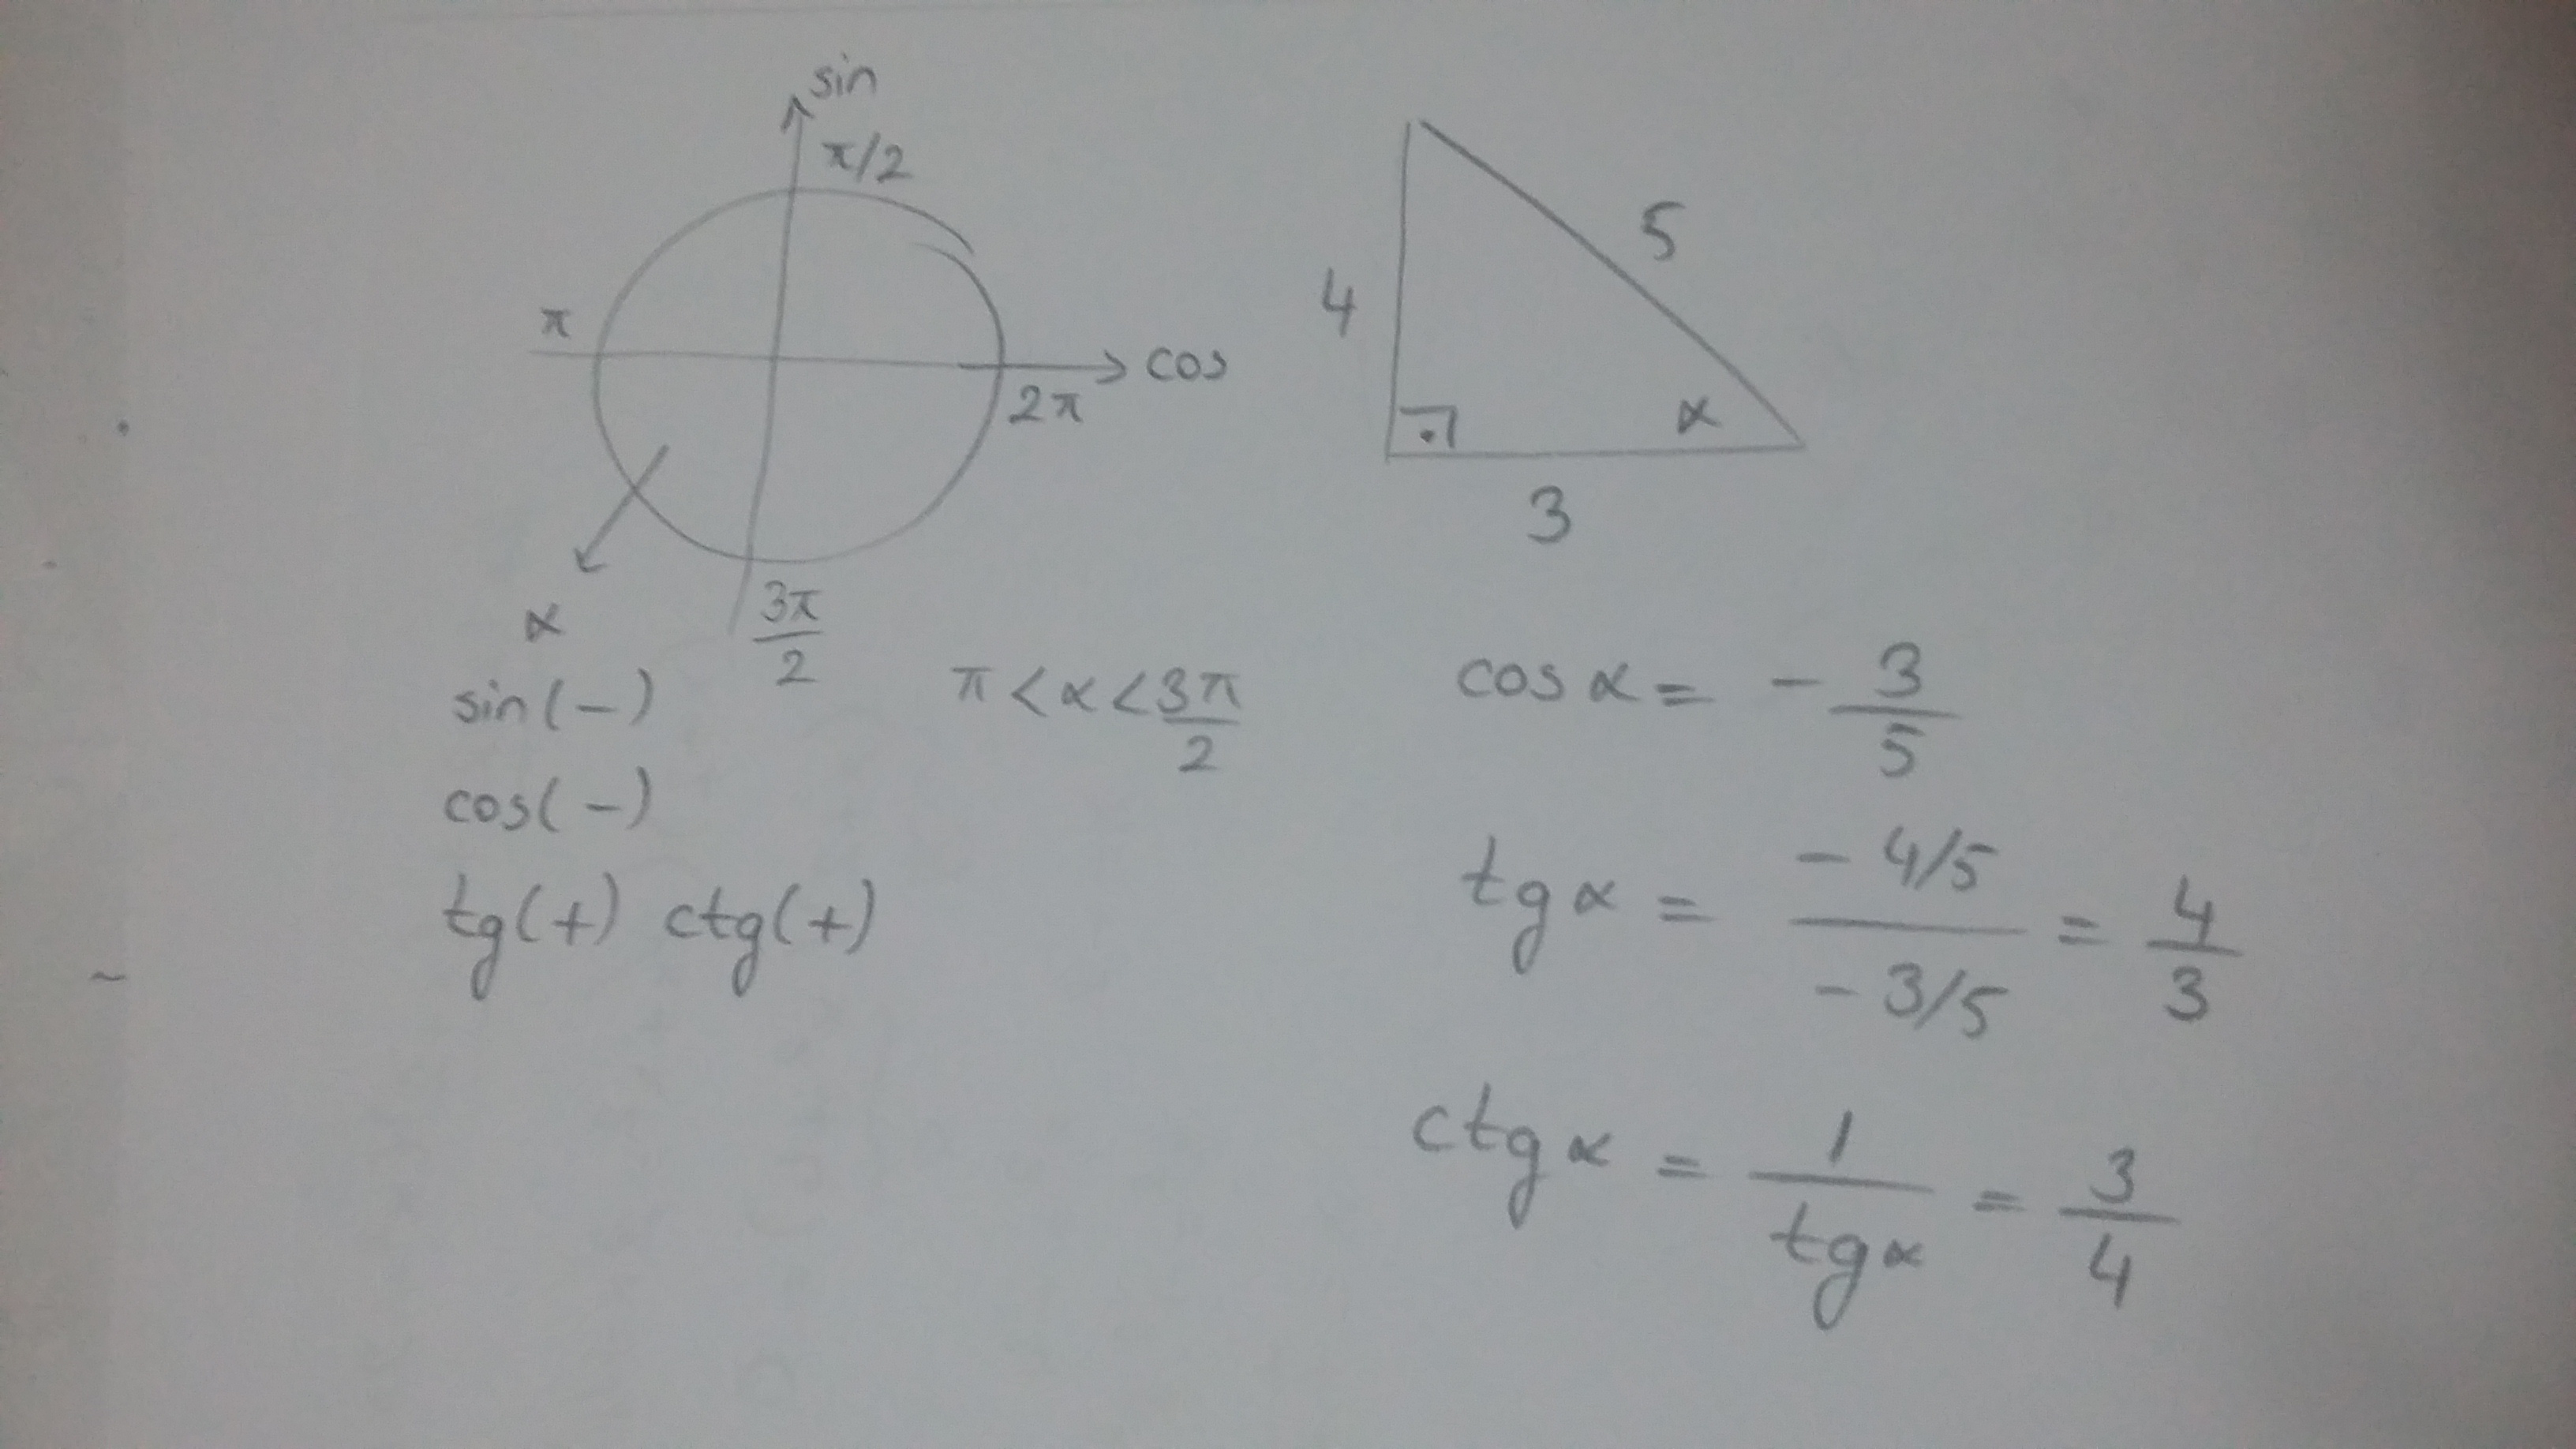 sin
π/2
π
cos
2π
3π/2
α
sin(-)
cos(-)
tg(+) ctg(+)
π < α < 3π/2
4
5
α
3
cos α = - 3/5
tg α = (- 4/5)/(- 3/5) = 4/3
ctg α = 1/tg α = 3/4